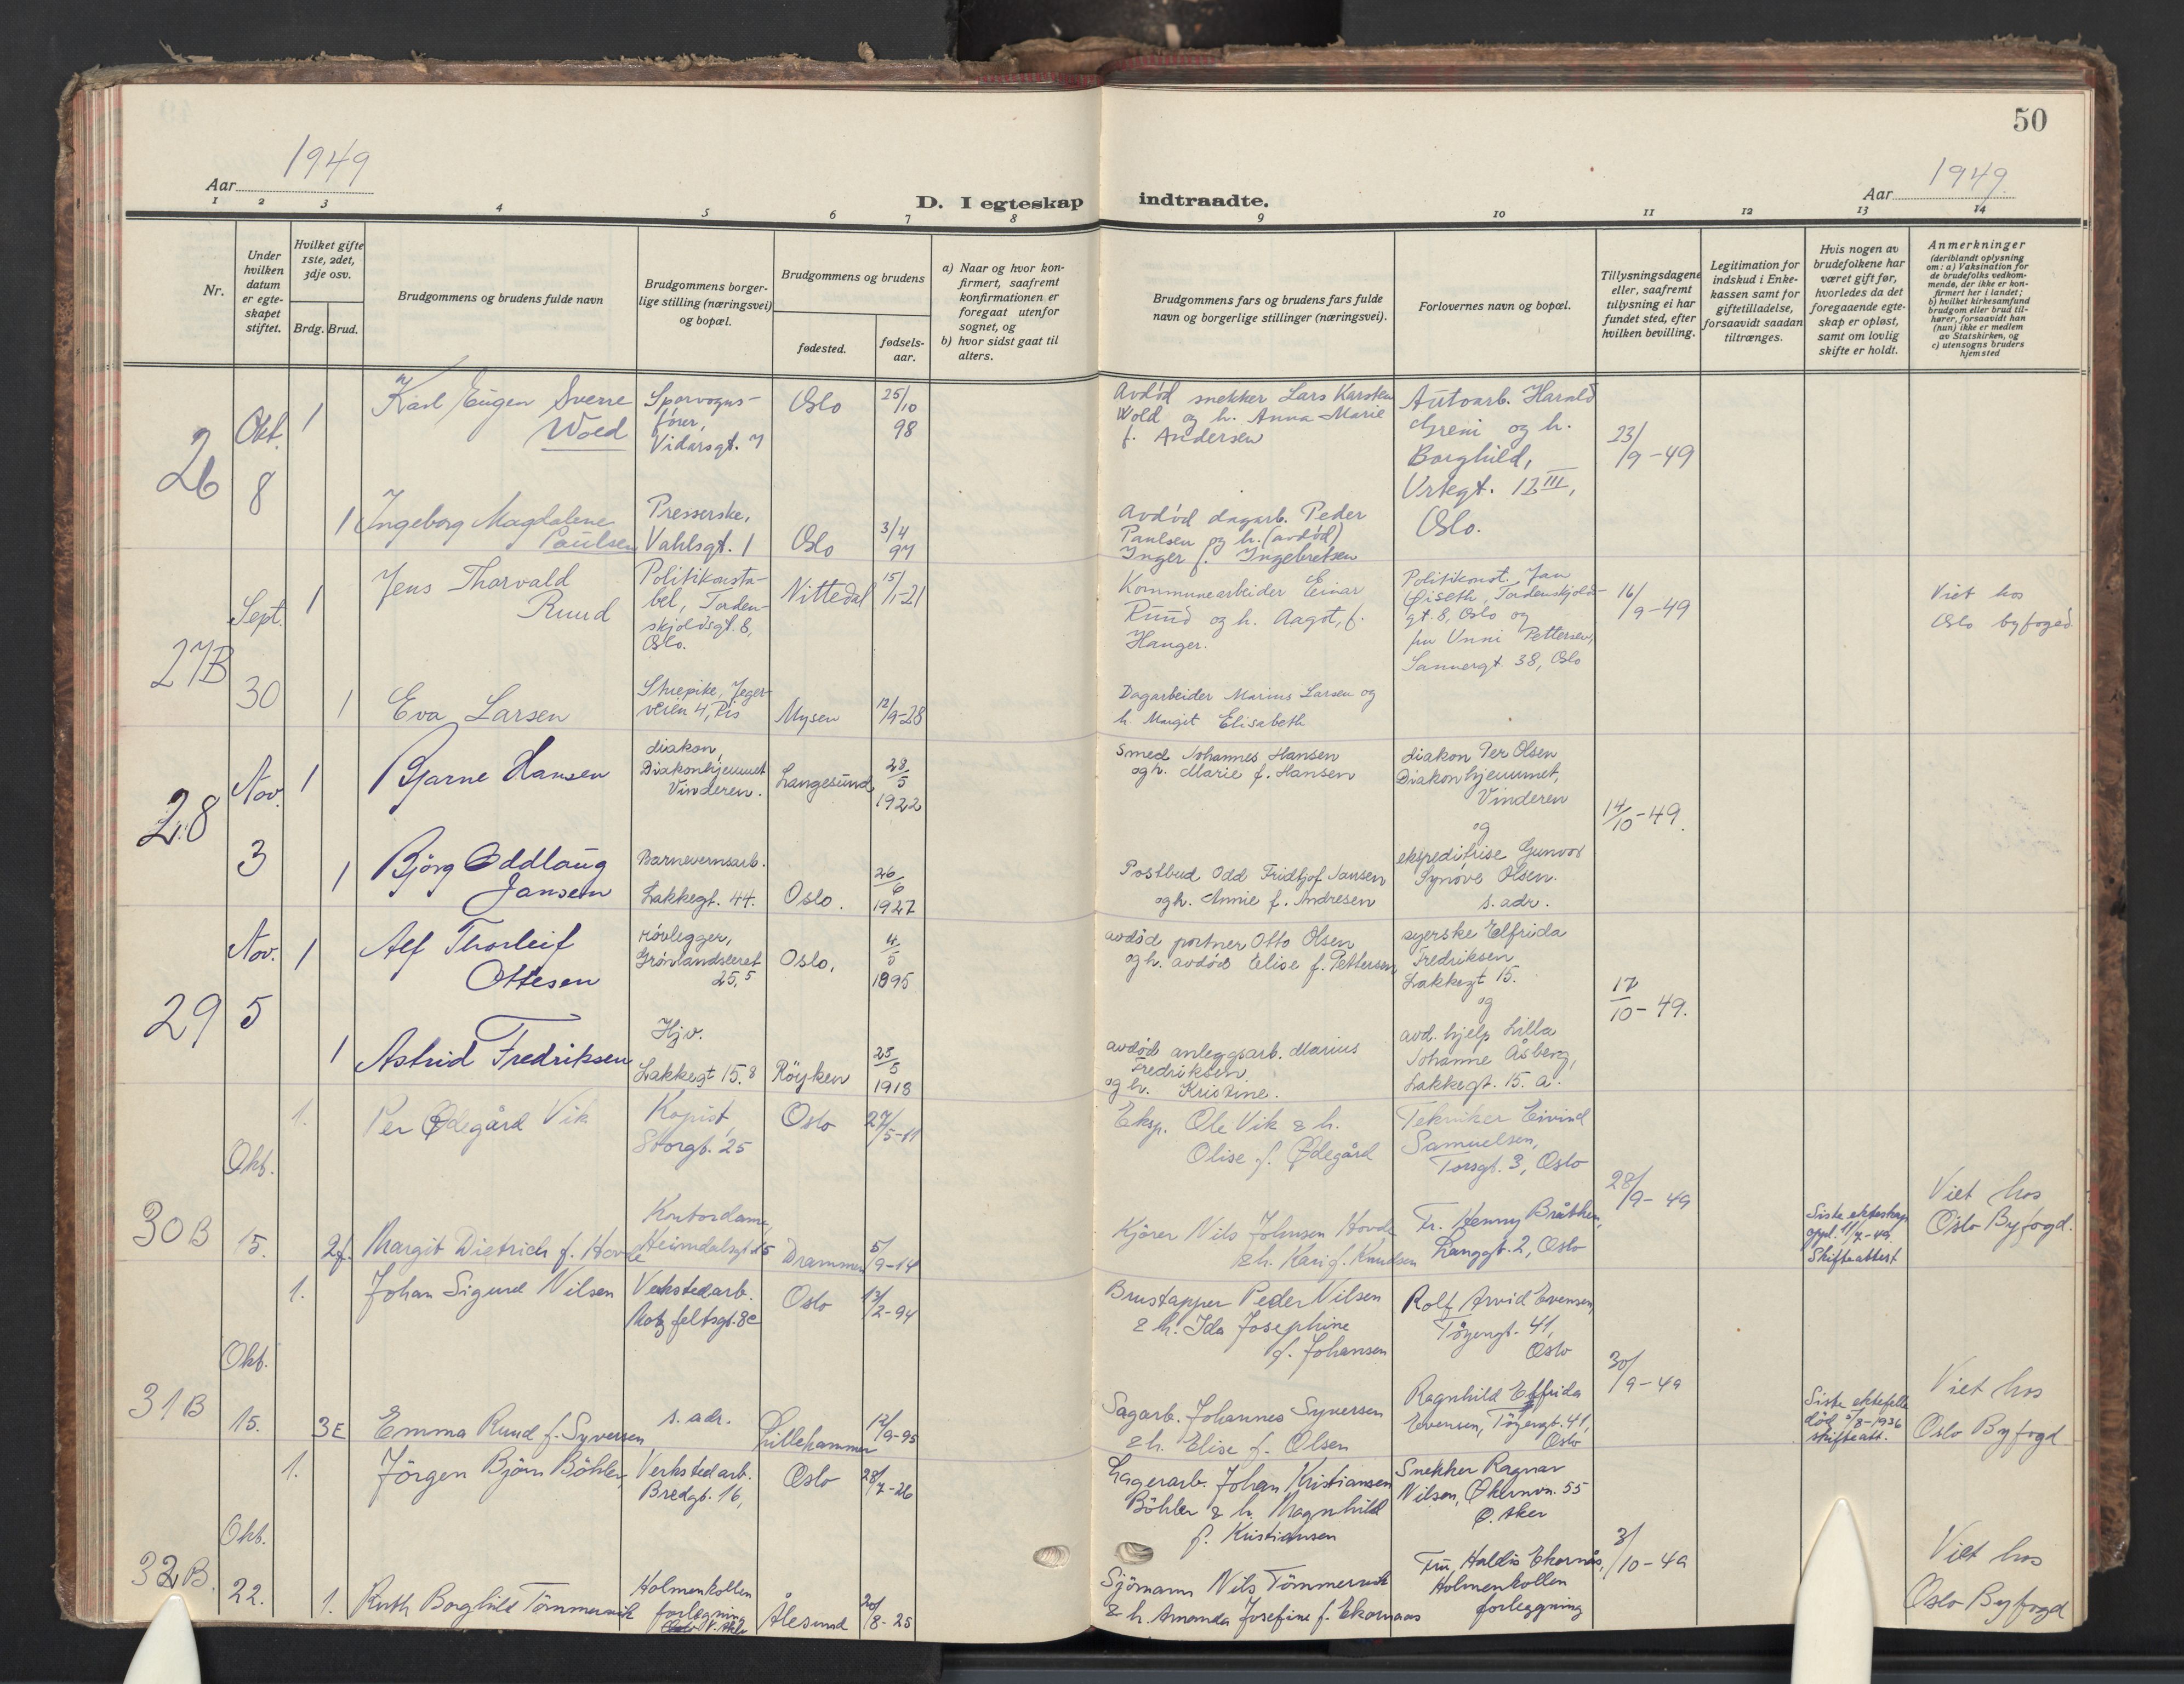 50
Aar 1949
D. I egteskap indtraadte.
Aar 1949.
1 2 3 4 5 6 7 8 9 10 11 12 13 14
Nr.
Under
hvilken
datum
er egte-
skapet
stiftet.
Hvilket gifte
1ste, 2det,
3dje osv.
Brdg. Brud.
Brudgommens og brudens fulde navn
Brudgommens borger-
lige stilling (næringsvei)
og bopæl.
Brudgommens og brudens
fødested.
fødsels-
aar.
a) Naar og hvor kon-
firmert, saafremt
konfirmationen er
foregaat utenfor
sognet, og
b) hvor sidst gaat til
alters.
Brudgommens fars og brudens fars fulde
navn og borgerlige stillinger (næringsvei).
Forlovernes navn og bopæl.
Tillysningsdagene
eller, saafremt
tillysning ei har
fundet sted, efter
hvilken bevilling.
Legitimation for
indskud i Enke-
kassen samt for
giftetilladelse,
forsaavidt saadan
tiltrænges.
Hvis nogen av
brudefolkene har
været gift før,
hvorledes da det
foregaaende egte-
skap er opløst,
samt om lovlig
skifte er holdt.
Anmerkninger
(deriblandt oplysning
om: a) Vaksination for
de brudefolks vedkom-
mende, der ikke er kon-
firmert her i landet;
b) hvilket kirkesamfund
brudgom eller brud til-
hører, forsaavidt han
(hun) ikke er medlem
av Statskirken, og
c) utensogns bruders
hjemsted
26
Okt.
8
1
Karl Eugen Sverre
Wold
Sporvogns-
fører,
Vidarsgt. 7
Oslo
25/10
98
Avdød snekker Lars Karsten
Wold og h. Anna Marie
f. Andersen
Autoarb. Harald
Greni og h.
Borghild,
Urtegt. 12 III,
Oslo.
23/9-49
1
Ingeborg Magdalene
Paulsen
Presserske,
Vahlsgt. 1
Oslo
3/4
97
Avdød dagarb. Peder
Paulsen og h. (avdød)
Inger f. Ingebretsen
27B
Sept.
30
1
Jens Thorvald
Ruud
Politikonsta-
bel, Torden-
skjoldsgt. 8,
Oslo.
Nittedal
15/1-21
Kommunearbeider Einar
Ruud og h. Aagot, f.
Hanger.
Politikonst. Jan
Øiseth, Tordenskjolds-
gt. 8, Oslo og
fru Unni Pettersen,
Sannergt. 38, Oslo
16/9-49
Viet hos
Oslo byfoged
1
Eva Larsen
Jeger-
veien 4, Ris
Mysen
12/9-28
Dagarbeider Marius Larsen og
h. Margit Elisabeth
28
Nov.
3
1
Bjarne Hansen
diakon,
Diakonhjemmet
Vinderen.
Langesund
28/5
1922
Smed Johannes Hansen
og h. Marie f. Hansen
diakon Per Olsen
Diakonhjemmet,
Vinderen
og
ekspeditrise Gunvor
Synøve Olsen.
s. adr.
14/10-49.
1
Björg Oddlaug
Jansen
Barnevernsarb.
Lakkegt. 44.
Oslo.
26/6
1927
Postbud Odd Fridtjof Jansen
og h. Annie f. Andresen
29
Nov.
5
1
Alf Thorleif
Ottesen
rørlegger,
Grønlandsleret
25.5
Oslo.
4/5
1895
avdød portner Otto Olsen
og h. avdød Elise f. Pettersen
syerske Elfrida
Fredriksen
Lakkegt 15.
og
avd. hjelp Lilla
Johanne Åsberg,
Lakkegt. 15. a.
17/10-49.
1
Astrid Fredriksen
Hjv.
Lakkegt 15.8
Röyken
25/5
1918
avdød anleggsarb. Marius
Fredriksen
og h. Kristine.
30 B
Okt.
15.
1.
Per Ødegård Vik
Kopist,
Storgt. 25
Oslo
27/5-11
Eksp. Ole Vik & h.
Olise f. Ødegård
Tekniker Eivind
Samuelsen,
Torsgt. 3, Oslo
28/9-49
2f.
Margit Dietrich f. Hovde
Kontordame,
Heimdalsgt 25
Drammen
5/9-14
Kjører Nils Johnsen Hovde
& h. Kari f. Knudsen
Fr. Henny Bråthen,
Langgt. 2, Oslo
Siste ekteskap
oppl. 11/7-49.
Skifteattest
Viet hos
Oslo Byfogd.
31 B
Okt.
15.
1.
Johan Sigurd Nilsen
Verkstedarb.
Motzfeltsgt. 8c
Oslo
13/2-94
Brustapper Peder Nilsen
& h. Ida Josephine
f. Johansen
Rolf Arvid Evensen,
Töyengt. 41,
Oslo
30/9-49
3E
Emma Ruud f. Syversen
s. adr.
Lillehammer
12/9-95
Sagarb. Johannes Syversen
& h. Elise f. Olsen
Ragnhild Elfrida
Evensen, Töyengt. 41,
Oslo
Siste ektefelle
død 5/8-1936
skifteatt.
Viet hos
Oslo Byfogd
32 B.
Okt.
22.
1.
Jörgen Björn Böhler,
Verkstedarb.
Bredgt. 16,
Oslo
28/7-26
Lagerarb. Johan Kristiansen
Böhler & h. Magnhild
f. Kristiansen
Snekker Ragnar
Nilsen, Økernvn. 55
Ø. Aker
3/10-49
1.
Ruth Borghild Tömmervik
Holmenkollen
forlegning
V. Aker
Ålesund
20/8-25
Sjömann Nils Tömmervik
& h. Amanda Josefine f. Ekornaas
Fru Haldis Ekornås,
Holmenkollen
forlegning
Viet hos
Oslo Byfogd